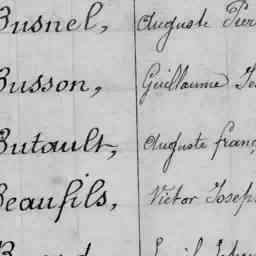 Busnel, Auguste Pier
Busson, Guillaume Jo
Butault, Auguste franç
Beaufils, Victor Joseph